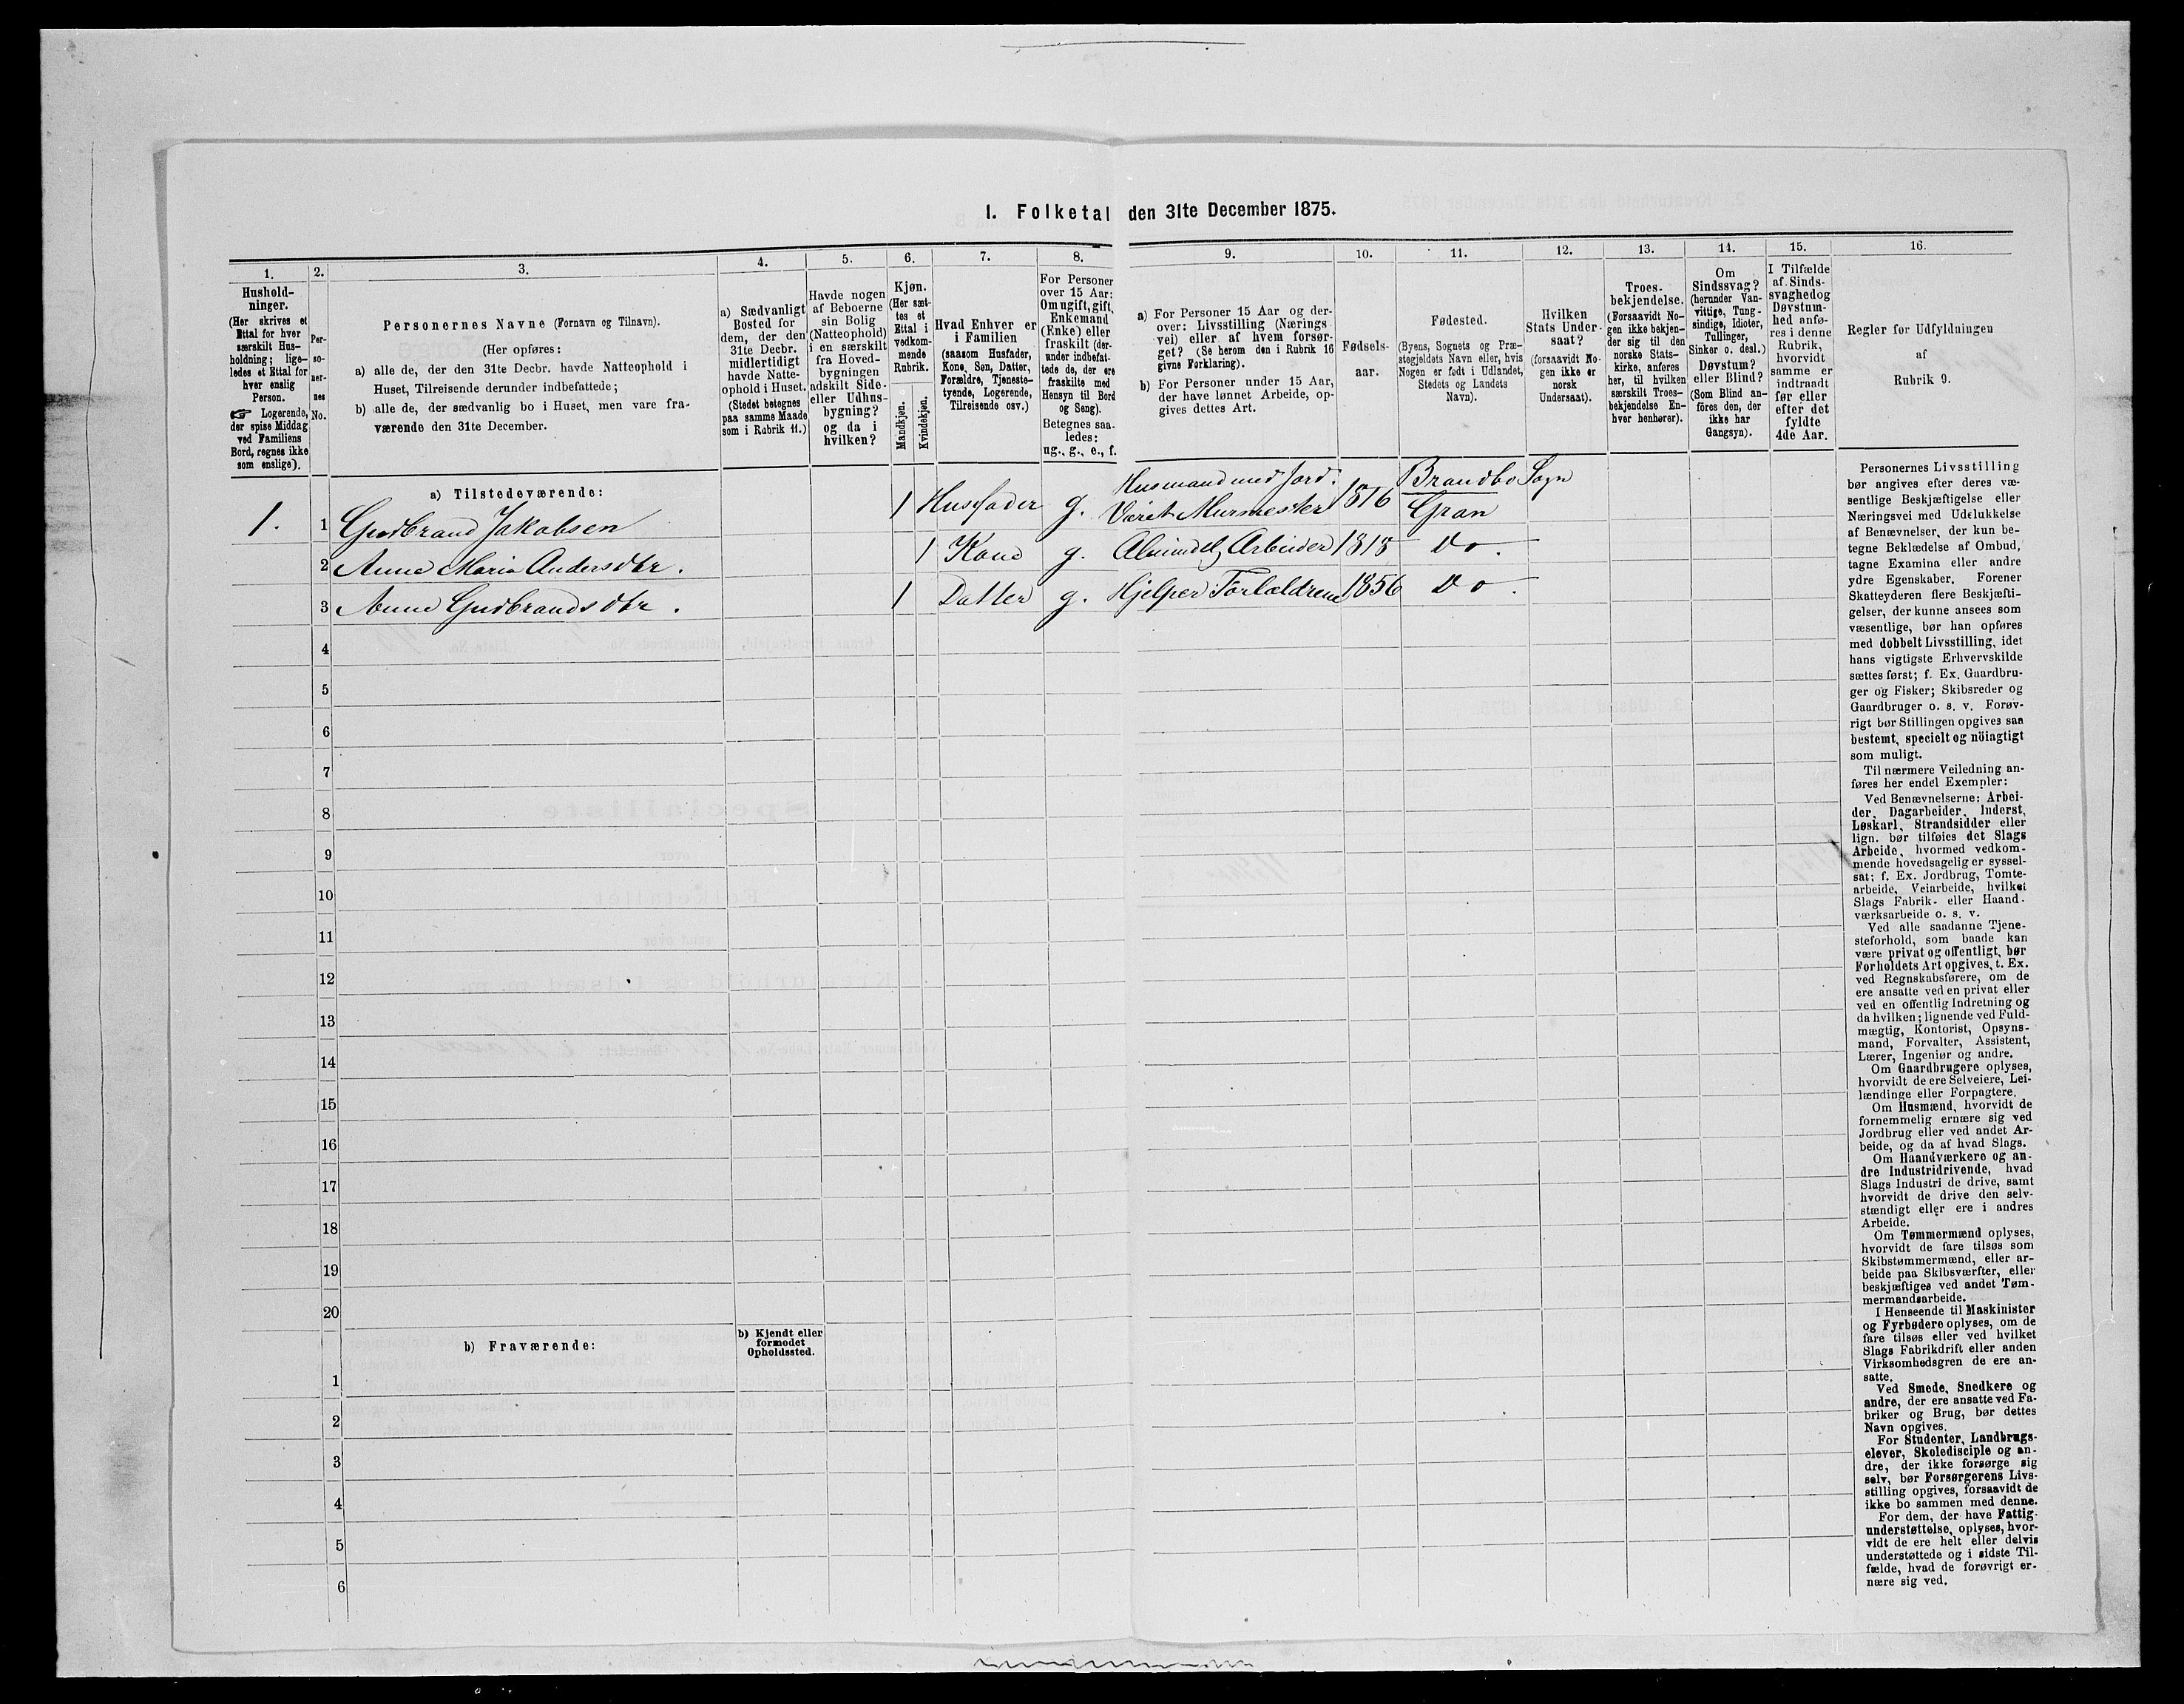 1. Folketal den 31te December 1875.
1.
Hushold-
ninger.
(Her skrives et
Ettal for hver
særskilt Hus-
holdning; lige-
ledes et Ettal for
hver enslig
Person.
☞ Logerende,
der spise Middag
ved Familiens
Bord, regnes ikke
som enslige).
2.
Per-
so-
ner-
nes
No.
3.
Personernes Navne (Fornavn og Tilnavn).
(Her opføres:
a) alle de, der den 31te Decbr. havde Natteophold i
Huset, Tilreisende derunder indbefattede;
b) alle de, der sædvanlig bo i Huset, men vare fra-
værende den 31te December.
4.
a) Sædvanligt
Bosted for
dem, der den
31te Decbr.
midlertidigt
havde Natte-
ophold i Huset.
(Stedet betegnes
paa samme Maade
som i Rubrik 11.)
5.
Havde nogen
af Beboerne
sin Bolig
(Natteophold)
i en særskilt
fra Hoved-
bygningen
adskilt Side-
eller Udhus-
bygning?
og da i
hvilken?
6.
Kjøn.
(Her sæt-
tes et
Ettal i
vedkom-
mende
Rubrik.
Mandkjøn.
Kvindekjøn.
7.
Hvad Enhver er
i Familien
(saasom Husfader,
Kone, Søn, Datter,
Forældre, Tjeneste-
tyende, Logerende,
Tilreisende osv.)
8.
For Personer
over 15 Aar:
Om ugift, gift,
Enkemand
(Enke) eller
fraskilt (der-
under indbefat-
tede de, der ere
fraskilte med
Hensyn til Bord
og Seng).
Betegnes saa-
ledes:
ug., g., e., f.
9.
a) For Personer 15 Aar og der-
over: Livsstilling (Nærings
vei) eller af hvem forsør-
get? (Se herom den i Rubrik 16
givne Forklaring).
b) For Personer under 15 Aar,
der have lønnet Arbeide, op-
gives dettes Art.
10.
Fødsels-
aar.
11.
Fødested.
(Byens, Sognets og Præ-
stegjeldets Navn eller, hvis
Nogen er født i Udlandet,
Stedets og Landets
Navn).
12.
Hvilken
Stats Under-
saat?
(forsaavidt No-
gen ikke er
norsk
Undersaat).
13.
Troes-
bekjendelse.
(Forsaavidt No-
gen ikke bekjen-
der sig til den
norske Stats-
kirke, anføres
her, til hvilken
særskilt Troes-
bekjendelse En-
hver henhører).
14.
Om
Sindssvag?
(herunder Van-
vittige, Tung-
sindige, Idioter,
Tullinger,
Sinker o. desl.)
Døvstum?
eller Blind?
(Som Blind an-
føres den, der
ikke har
Gangsyn).
15.
I Tilfælde
af Sinds-
svaghed og
Døvstum-
hed anfø-
res i denne
Rubrik,
hvorvidt
samme er
indtraadt
før eller
efter det
fyldte
4de Aar.
16.
Regler for Udfyldningen
af
Rubrik 9.
a) Tilstedeværende:
1. 1 Gudbrand Jakobsen 1 Husfader g. Husmand med Jord. Været Murmester 1816 Brandbo Sogn Gran
2 Anne Maria Andersdtr. 1 Kone g. Almindelg Arbeider 1818 Do.
3 Anne Gudbrandsdtr. 1 Datter g. Hjelper Forældrene 1856 Do.
4
5
6
7
8
9
10
11
12
13
14
15
16
17
18
19
20
b) Fraværende:
b) Kjendt eller
formodet
Opholdssted.
1
2
3
4
5
6
Personernes Livsstilling
bør angives efter deres væ-
sentlige Beskjæftigelse eller
Næringsvei med Udelukkelse
af Benævnelser, der kun be-
tegne Beklædelse af Ombud,
tagne Examina eller andre
ydre Egenskaber. Forener
Skatteyderen flere Beskjæfti-
gelser, der kunne ansees som
væsentlige, bør han opføres
med dobbelt Livsstilling, idet
hans vigtigste Erhvervskilde
sættes først; f. Ex. Gaardbru-
ger og Fisker; Skibsreder og
Gaardbruger o. s. v. Forøv-
rigt bør Stillingen opgives saa
bestemt, specielt og nöiagtigt
som muligt.
Til nærmere Veiledning an-
føres her endel Exempler:
Ved Benævnelserne: Arbei-
der, Dagarbeider, Inderst,
Løskarl, Strandsidder eller
lign. bør tilføies det Slags
Arbeide, hvormed vedkom-
mende hovedsagelig er syssel-
sat; f. Ex. Jordbrug, Tomte-
arbeide, Veiarbeide, hvilket
Slags Fabrik- eller Haand-
værksarbeide o. s. v.
Ved alle saadanne Tjene-
steforhold, som baade kan
være privat og offentligt, bør
Forholdets Art opgives, t. Ex.
ved Regnskabsførere, om de
ere ansatte ved en privat eller
ved en offentlig Indretning og
da hvilken; lignende ved Fuld-
mægtig, Kontorist, Opsyns-
mand, Forvalter, Assistent,
Lærer, Ingeniør og andre.
Om Gaardbrugere oplyses,
hvorvidt de ere Selveiere, Lei-
lændinge eller Forpagtere.
Om Husmænd, hvorvidt de
fornemmelig ernære sig ved
Jordbrug eller ved andet Ar-
beide, og da af hvad Slags.
Om Haandværkere og an-
dre Industridrivende, hvad
Slags Industri de drive, samt
hvorvidt de drive den selv-
stændigt eller ere i andres
Arbeide.
Om Tømmermænd oplyses,
hvorvidt de fare tilsøs som
Skibstømmermænd, eller ar-
beide paa Skibsværfter, eller
beskjæftiges ved andet Tøm-
mermandsarbeide.
I Henseende til Maskinister
og Fyrbødere oplyses, om de
fare tilsøs eller ved hvilket
Slags Fabrikdrift eller anden
Virksomhedsgren de ere an-
satte.
Ved Smede, Snedkere og
andre, der ere ansatte ved Fa-
briker og Brug, bør dettes
Navn opgives.
For Studenter, Landbrugs-
elever, Skoledisciple og an-
dre, der ikke forsørge sig
selv, bør Forsørgerens Livs-
stilling opgives, forsaavidt de
ikke bo sammen med denne.
For dem, der have Fattig-
understøttelse, oplyses, hvor-
vidt de ere helt eller delvis
understøttede og i sidste Til-
fælde, hvad de forøvrigt er-
nære sig ved.